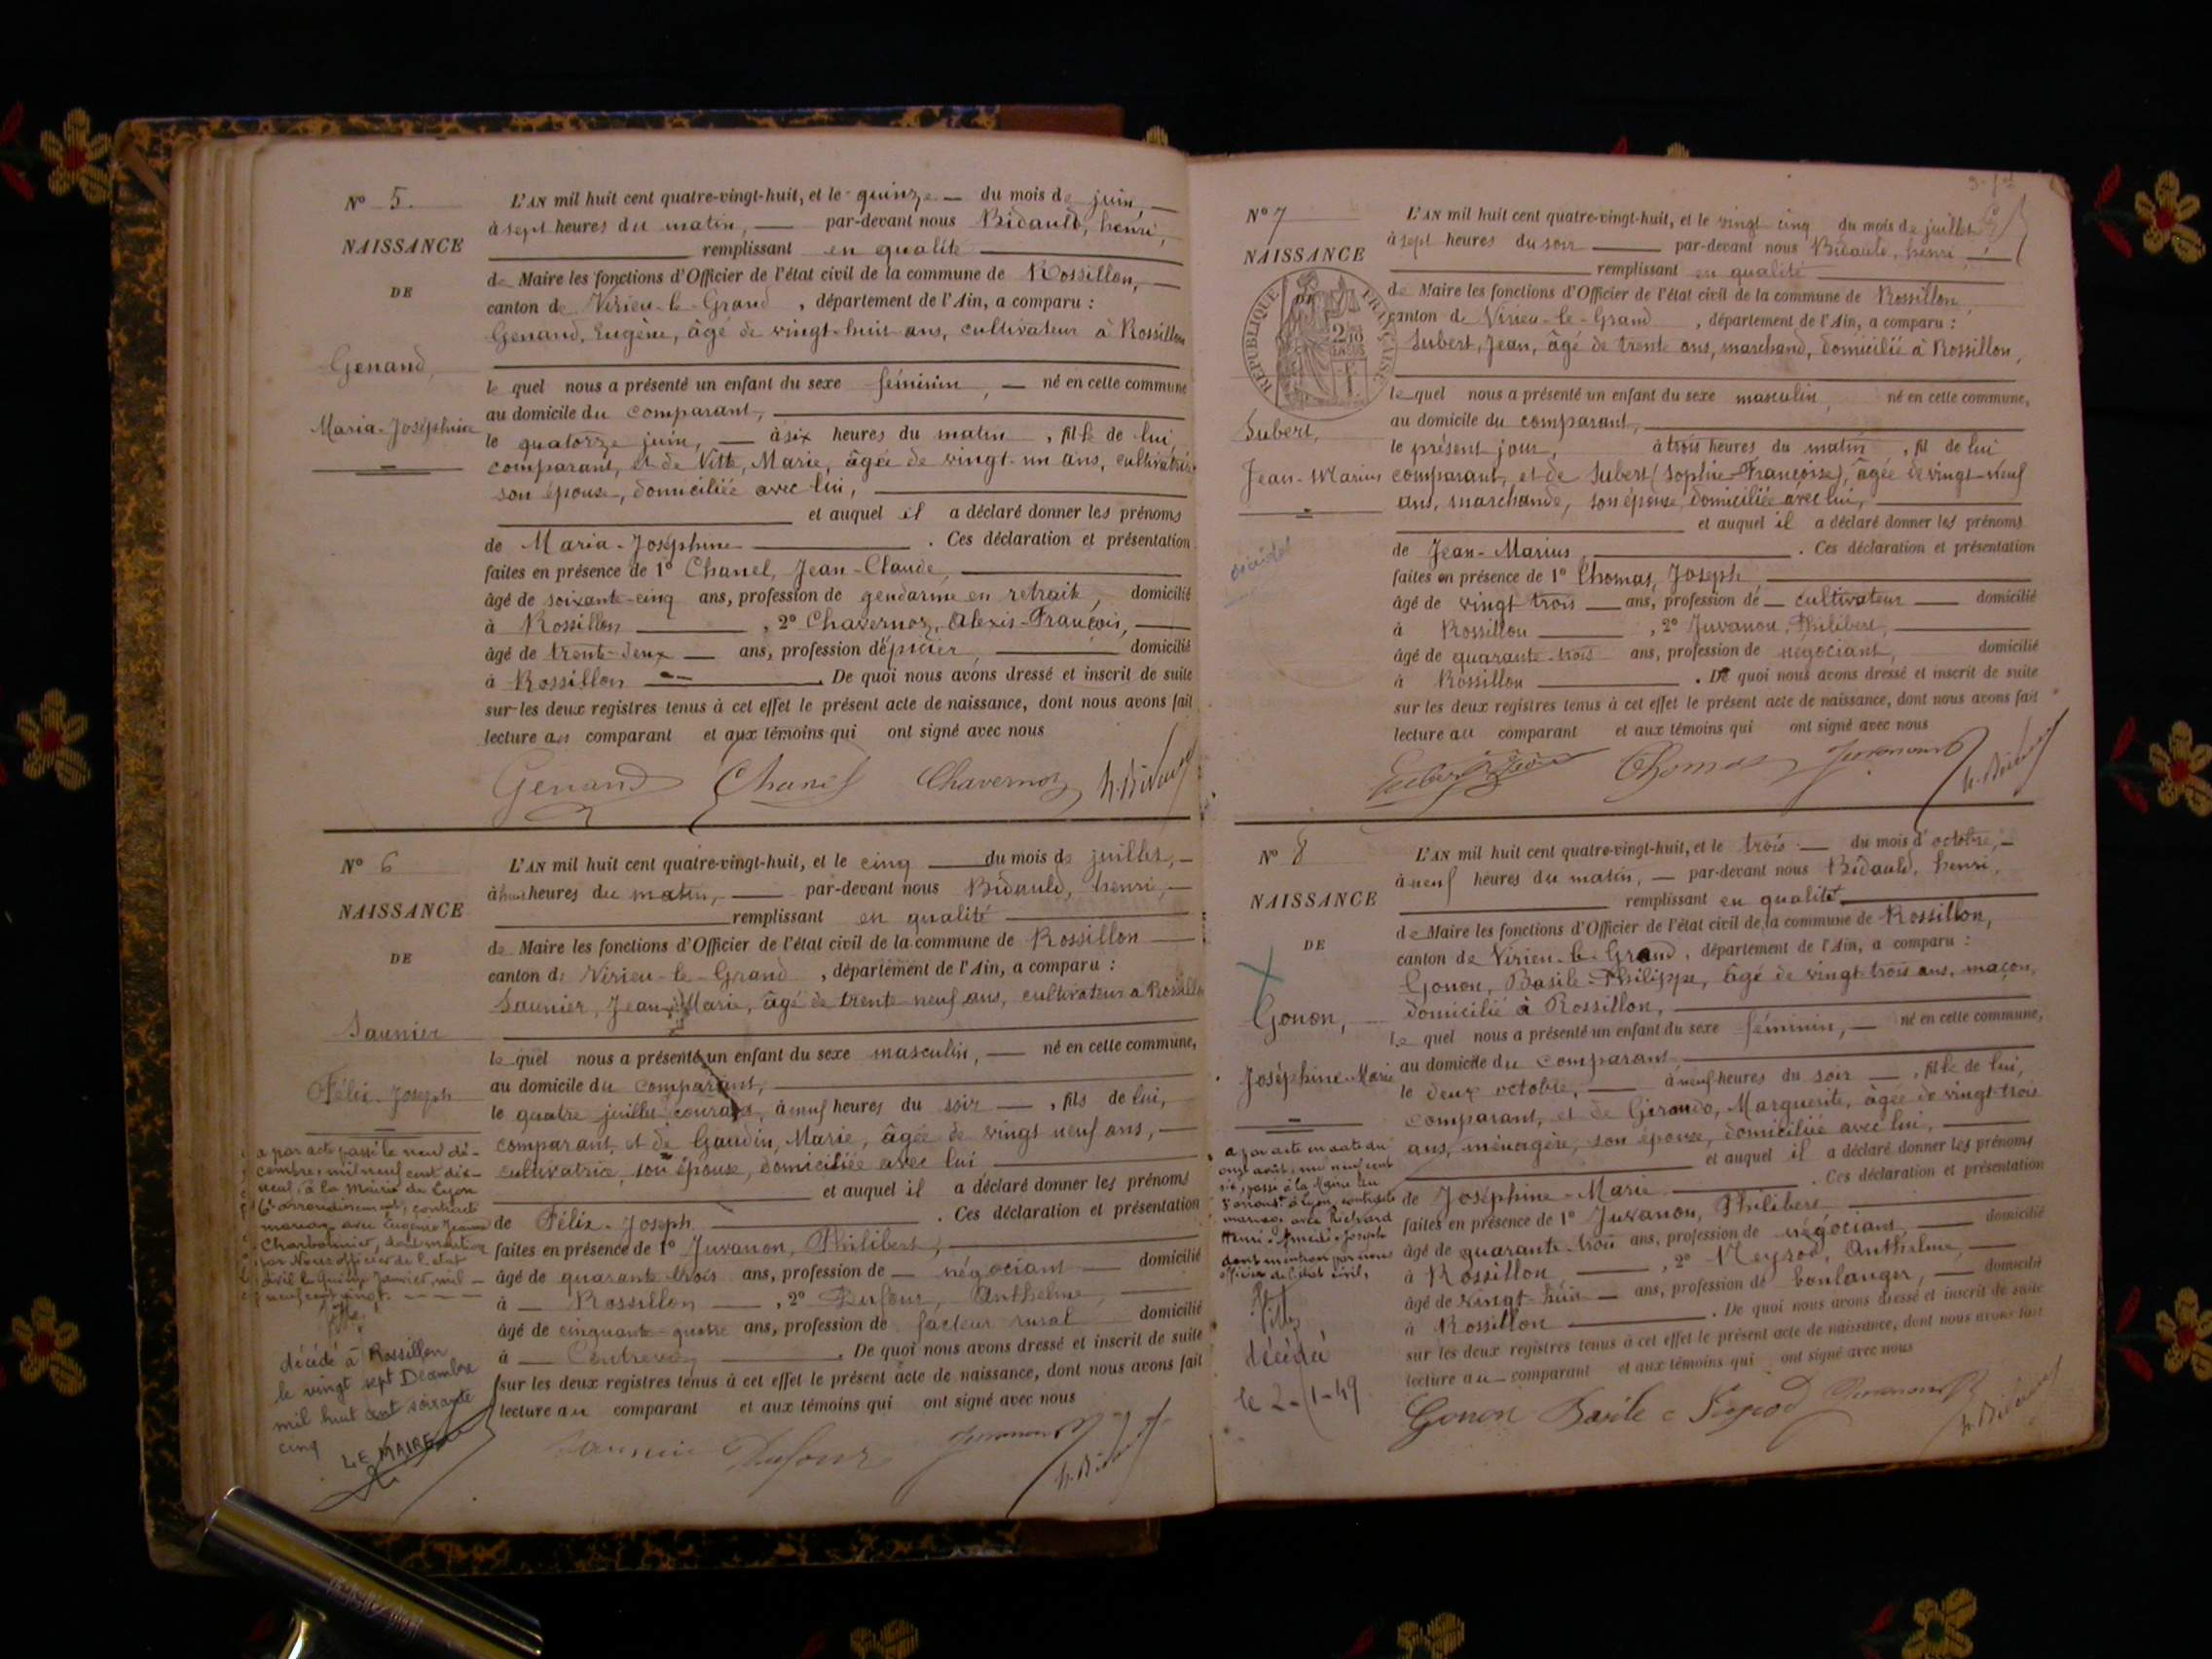 N° 5.
NAISSANCE
DE
Genand,
Maria-Joséphine
L'AN mil huit cent quatre-vingt-huit, et le quinze du mois de juin,
à sept heures du matin, par-devant nous Bidauld, henri,
remplissant en qualité
de Maire les fonctions d'Officier de l'état civil de la commune de Rossillon,
canton de Virieu-le-Grand, département de l'Ain, a comparu :
Genand, Eugène, âgé de vingt-huit ans, cultivateur à Rossillon
lequel nous a présenté un enfant du sexe féminin, né en cette commune
au domicile du comparant,
le quatorze juin, à six heures du matin, fille de lui
comparant, et de Vitte, Marie, âgée de vingt-un ans, cultivatrice
son épouse, domiciliée avec lui,
et auquel il a déclaré donner les prénoms
de Maria-Joséphine. Ces déclaration et présentation
faites en présence de 1° Chanel, Jean-Claude,
âgé de soixante-cinq ans, profession de gendarme en retraite, domicilié
à Rossillon, 2° Chavernoz, Alexis-François,
âgé de trente-deux ans, profession d'épicier, domicilié
à Rossillon. De quoi nous avons dressé et inscrit de suite
sur les deux registres tenus à cet effet le présent acte de naissance, dont nous avons fait
lecture au comparant et aux témoins qui ont signé avec nous
Genand Chanel Chavernoz h. Bidauld
N° 6
NAISSANCE
DE
Saunier
Félix-Joseph
a par acte passé le neuf dé-
cembre, mil neuf cent dix-
neuf, à la Mairie de Lyon
6e arrondissement, contracté
mariage avec Eugénie Jeanne
Charbonnier, dont mention
par Nous officier de l'état
civil le quinze Janvier mil
neuf cent vingt.
décédé à Rossillon
le vingt sept Décembre
mil huit cent soixante
cinq
LE MAIRE
L'AN mil huit cent quatre-vingt-huit, et le cinq du mois de juillet,
à huit heures du matin, par-devant nous Bidauld, henri,
remplissant en qualité
de Maire les fonctions d'Officier de l'état civil de la commune de Rossillon
canton de Virieu-le-Grand, département de l'Ain, a comparu :
Saunier, Jean-Marie, âgé de trente neuf ans, cultivateur à Rossillon
lequel nous a présenté un enfant du sexe masculin, né en cette commune,
au domicile du comparant,
le quatre juillet courant, à neuf heures du soir, fils de lui,
comparant, et de Gaudin, Marie, âgée de vingt neuf ans,
cultivatrice, son épouse, domiciliée avec lui
et auquel il a déclaré donner les prénoms
de Félix-Joseph. Ces déclaration et présentation
faites en présence de 1° Juvanon, Philibert,
âgé de quarante trois ans, profession de négociant domicilié
à Rossillon, 2° Dufour, Anthelme,
âgé de cinquante-quatre ans, profession de facteur rural domicilié
à Contrevoz. De quoi nous avons dressé et inscrit de suite
sur les deux registres tenus à cet effet le présent acte de naissance, dont nous avons fait
lecture au comparant et aux témoins qui ont signé avec nous
Saunier Dufour Juvanon h. Bidauld
N° 7
NAISSANCE
DE
RÉPUBLIQUE FRANÇAISE
Jubert,
Jean-Marius
décédé
L'AN mil huit cent quatre-vingt-huit, et le vingt cinq du mois de juillet
à sept heures du soir par-devant nous Bidauld, henri,
remplissant en qualité
de Maire les fonctions d'Officier de l'état civil de la commune de Rossillon
canton de Virieu-le-Grand, département de l'Ain, a comparu :
Jubert, Jean, âgé de trente ans, marchand, domicilié à Rossillon,
lequel nous a présenté un enfant du sexe masculin, né en cette commune,
au domicile du comparant,
le présent jour, à trois heures du matin, fil de lui
comparant, et de Jubert (Sophie-Françoise), âgée de vingt-neuf
ans, marchande, son épouse, domiciliée avec lui,
et auquel il a déclaré donner les prénoms
de Jean-Marius. Ces déclaration et présentation
faites en présence de 1° Thomas, Joseph,
âgé de vingt trois ans, profession de cultivateur domicilié
à Rossillon, 2° Juvanon, Philibert,
âgé de quarante-trois ans, profession de négociant, domicilié
à Rossillon. De quoi nous avons dressé et inscrit de suite
sur les deux registres tenus à cet effet le présent acte de naissance, dont nous avons fait
lecture au comparant et aux témoins qui ont signé avec nous
Thomas Juvanon h. Bidauld
N° 8
NAISSANCE
DE
Gonon,
Joséphine-Marie
a par acte en date du
onze août, mil neuf cent
six, passé à la Mairie du
arrondt à Lyon, contracté
mariage avec Richard
Henri Joseph
dont mention par nous
officier de l'état civil,
décédé
le 2-1-49
L'AN mil huit cent quatre-vingt-huit, et le trois du mois d'octobre,
à neuf heures du matin, par-devant nous Bidauld, henri,
remplissant en qualité
de Maire les fonctions d'Officier de l'état civil de la commune de Rossillon,
canton de Virieu-le-Grand, département de l'Ain, a comparu :
Gonon, Basile-Philippe, âgé de vingt-trois ans, maçon,
domicilié à Rossillon,
lequel nous a présenté un enfant du sexe féminin, né en cette commune,
au domicile du comparant
le deux octobre, à neuf heures du soir, fille de lui,
comparant, et de Girando, Marguerite, âgée de vingt-trois
ans, ménagère, son épouse, domiciliée avec lui,
et auquel il a déclaré donner les prénoms
de Joséphine-Marie. Ces déclaration et présentation
faites en présence de 1° Juvanon, Philibert
âgé de quarante-trois ans, profession de négociant, domicilié
à Rossillon, 2° Peysod, Anthelme,
âgé de vingt-huit ans, profession de boulanger, domicilié
à Rossillon. De quoi nous avons dressé et inscrit de suite
sur les deux registres tenus à cet effet le présent acte de naissance, dont nous avons fait
lecture au comparant et aux témoins qui ont signé avec nous
Gonon Basile Juvanon h. Bidauld